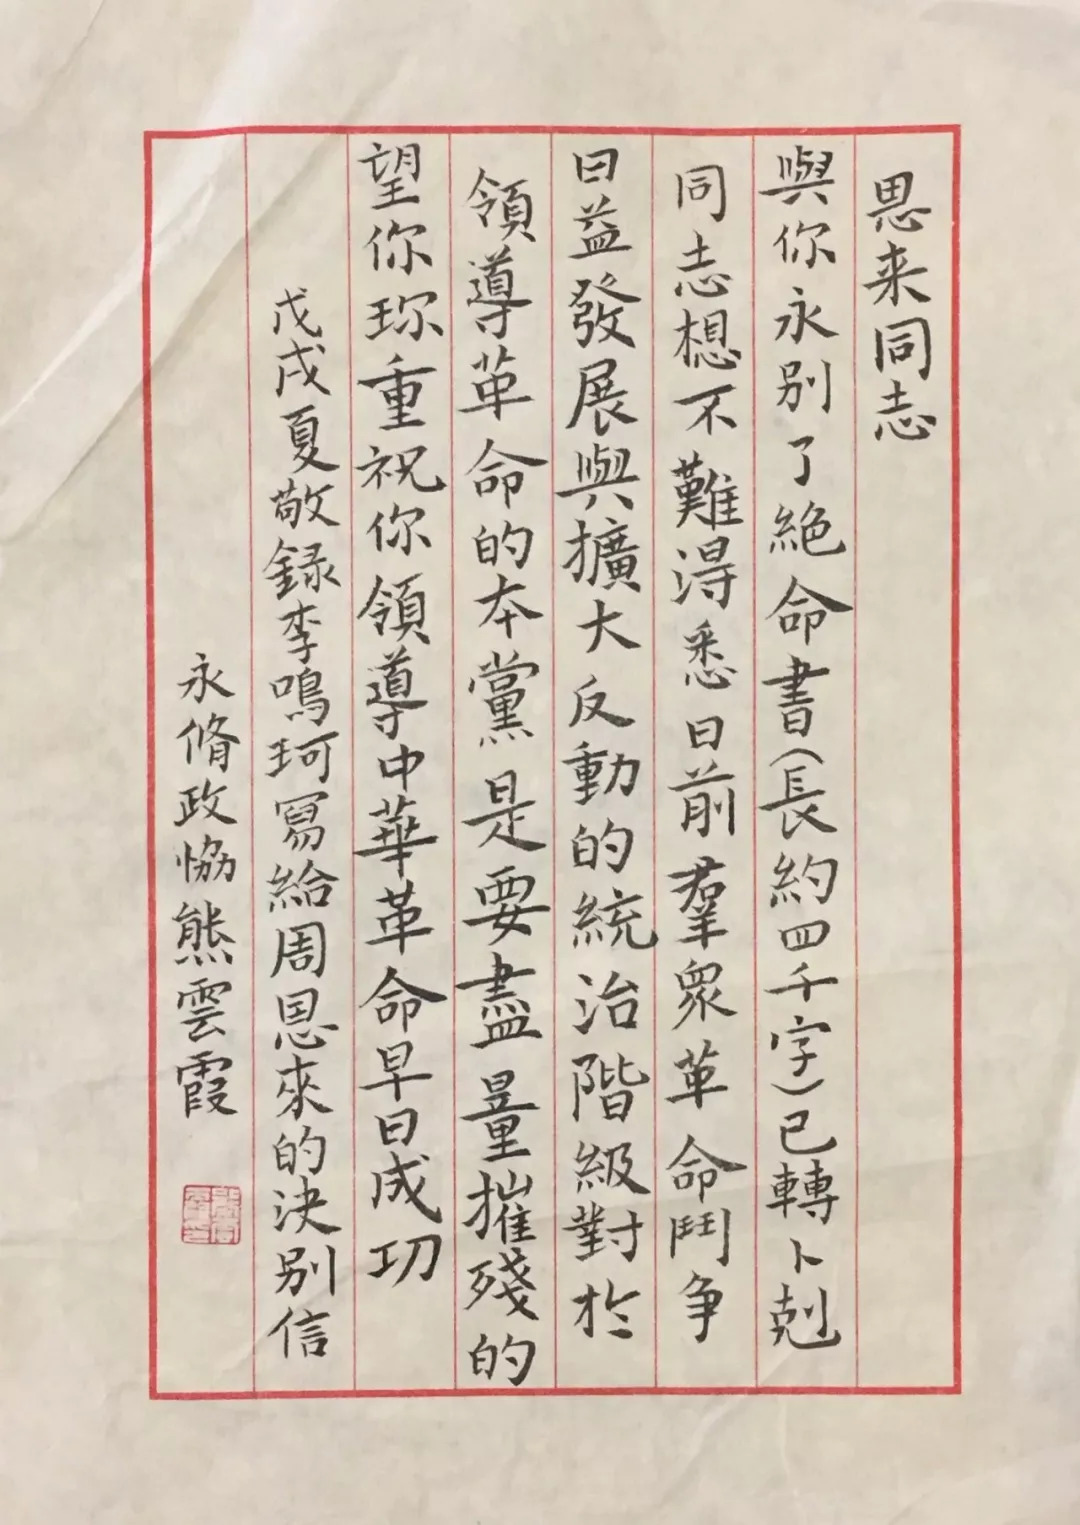 恩来同志
與你永别了絶命書(長約四千字)已轉卜剋
同志想不難淂悉日前羣衆革命鬥争
日益發展與擴大反動的統治階級對於
領導革命的本黨是要盡量摧殘的
望你珎重祝你領導中華革命早日成功
戊戌夏敬録李鳴珂冩給周恩來的决别信
永脩政恊熊雲霞